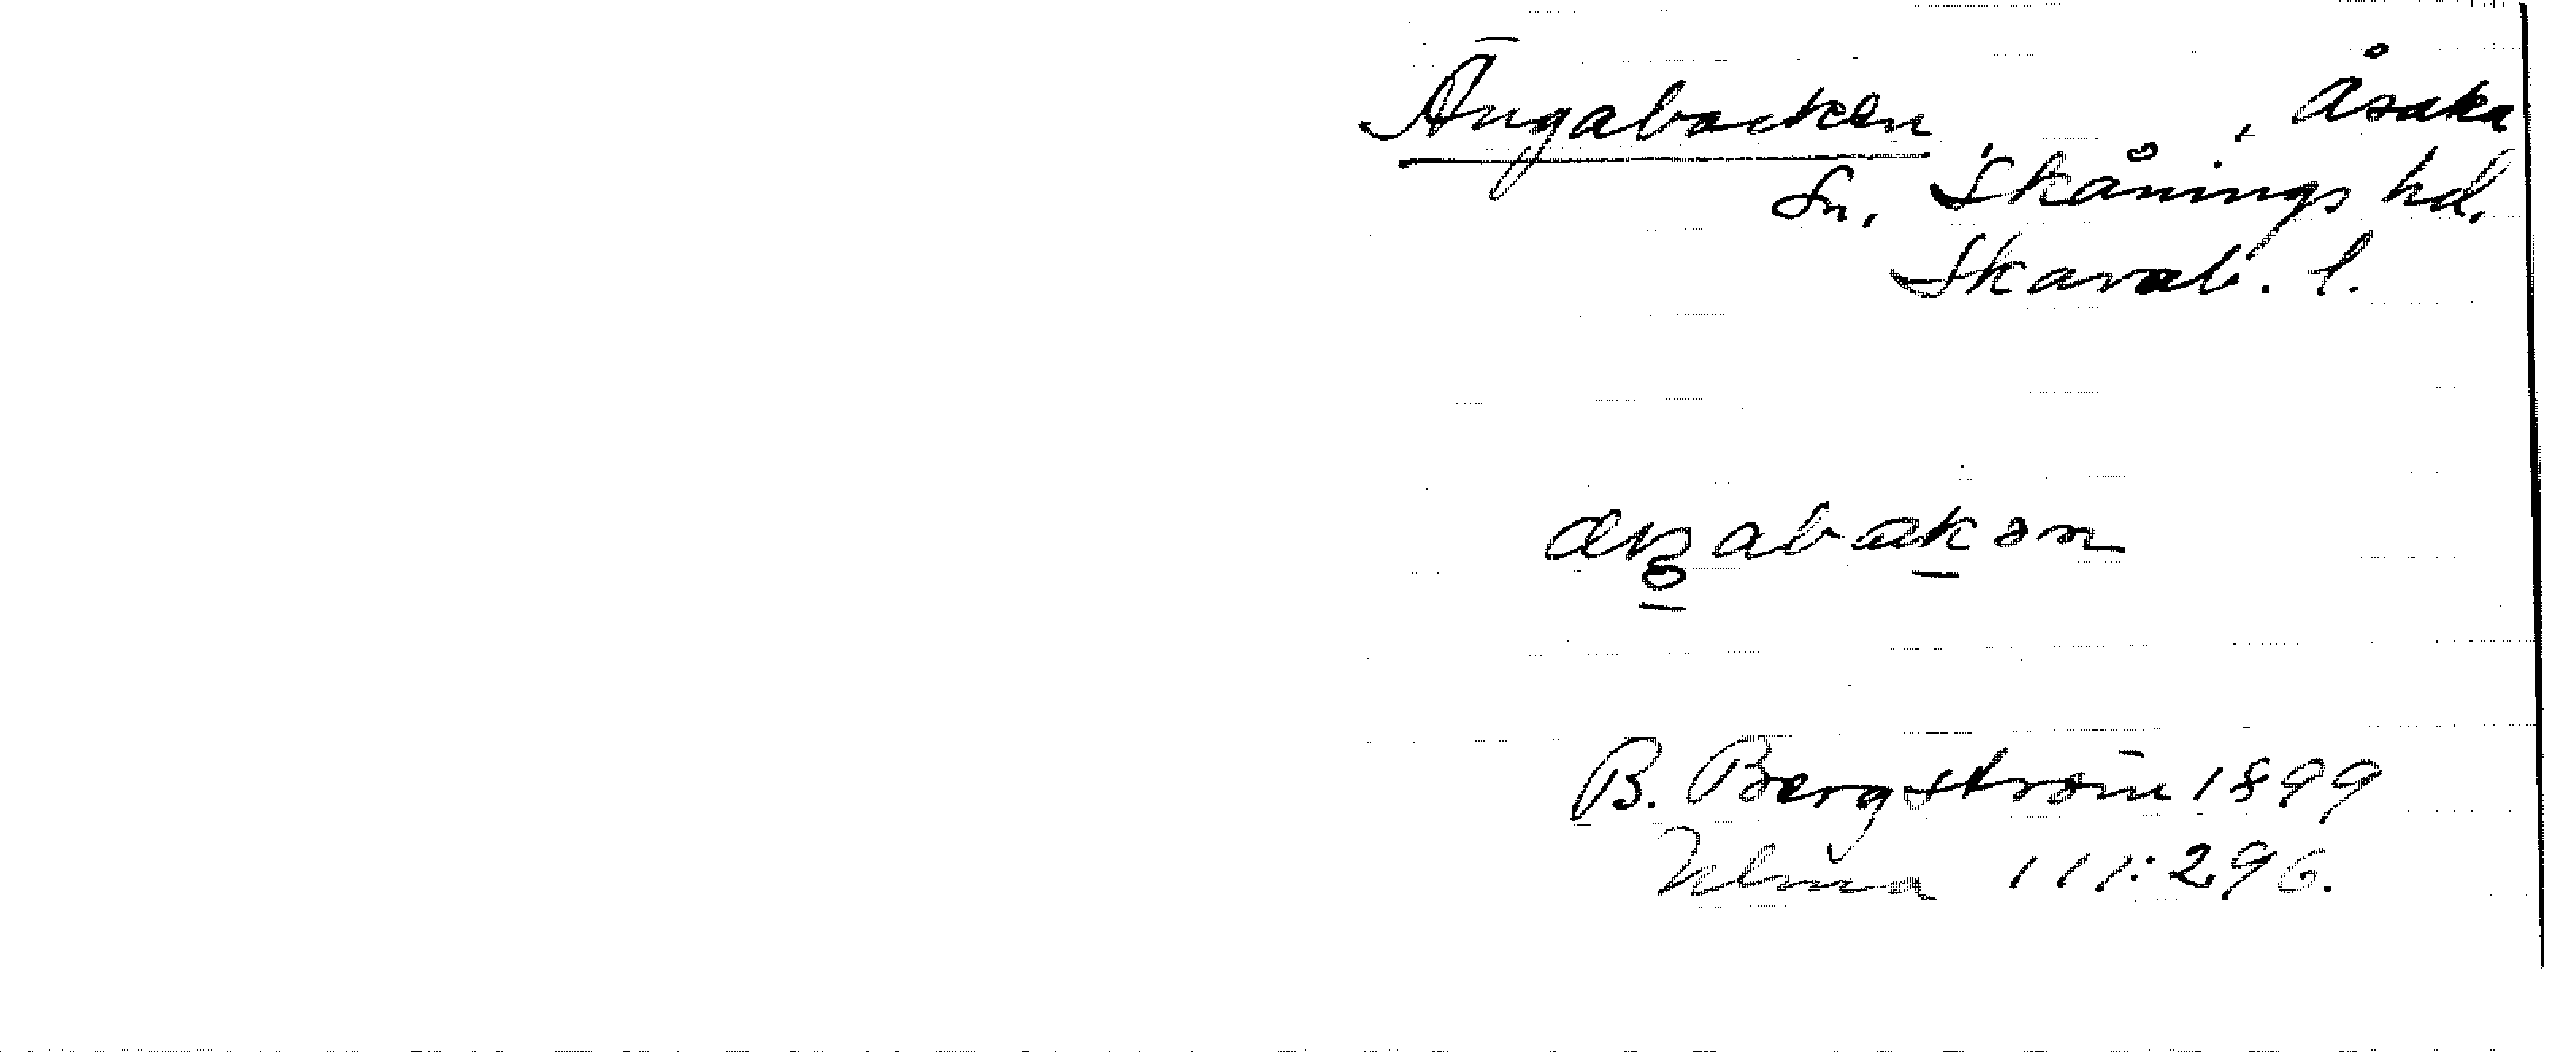 Ängabacken, Åsaka
Sn, Skånings hd.
Skarab. l.
æŋabakən
B. Bergström 1899
Ulma 111:296.